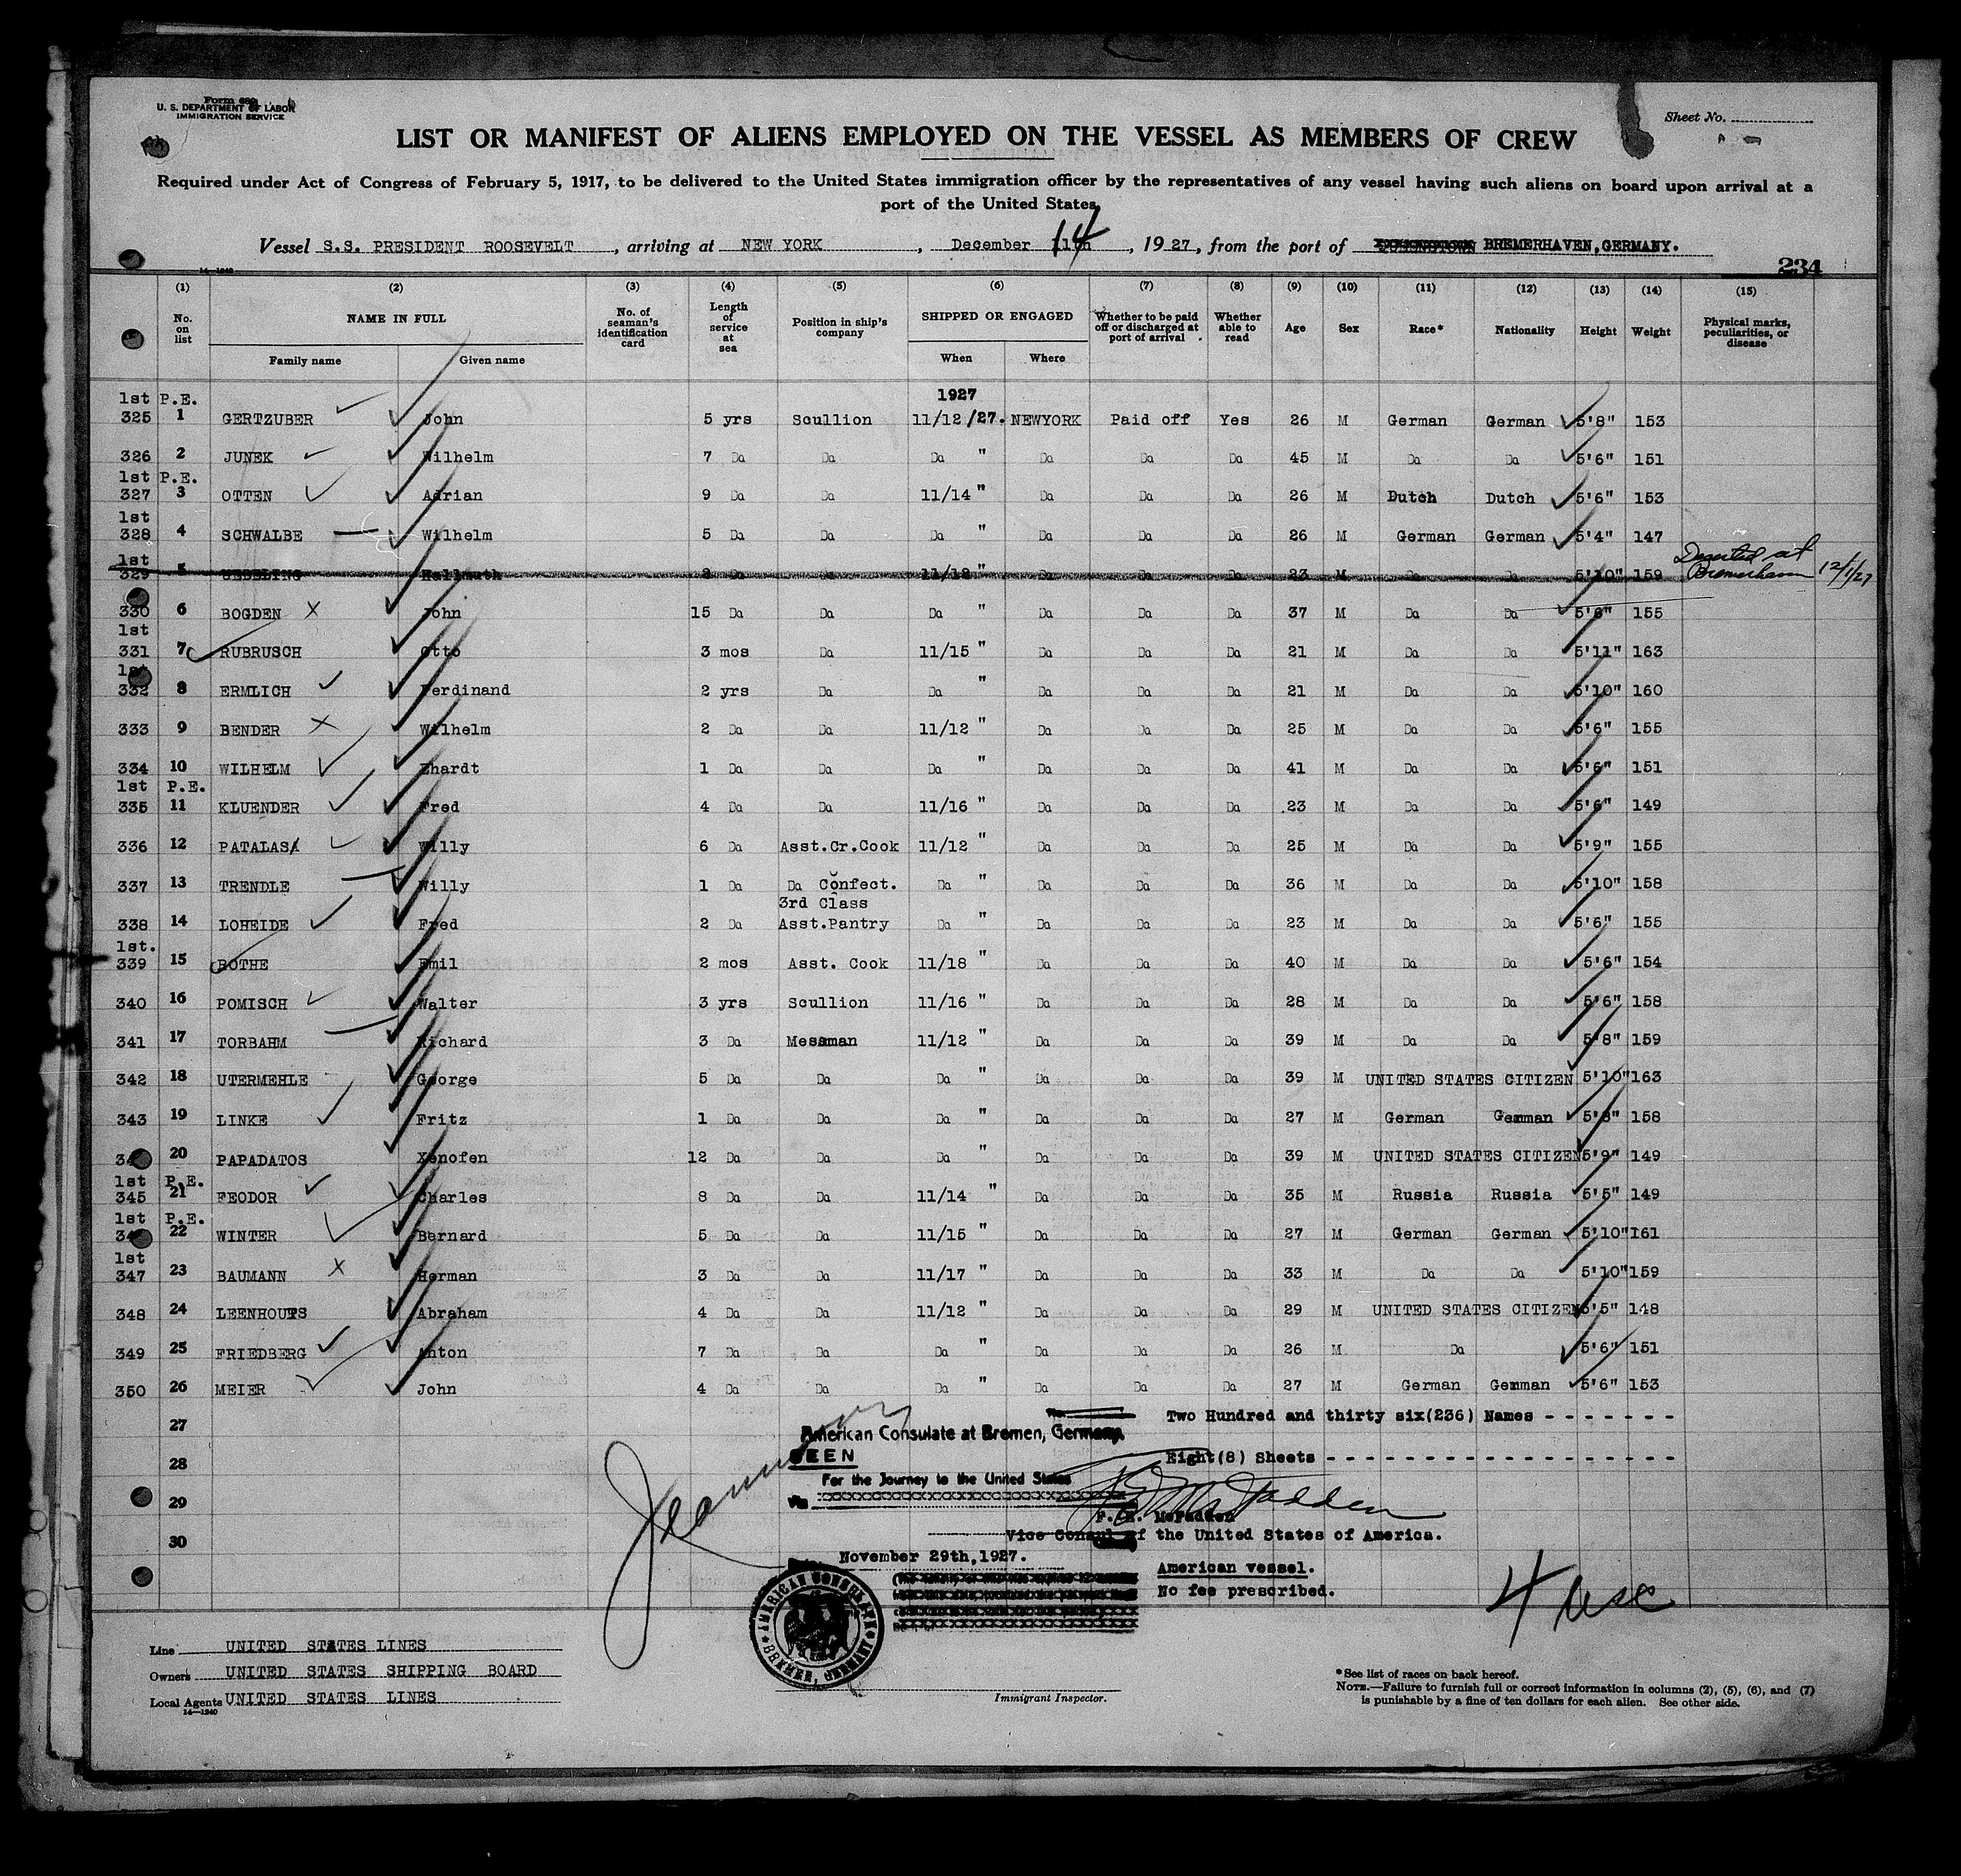 Form 689
U. S. DEPARTMENT OF LABOR
IMMIGRATION SERVICE
Sheet No.
LIST OR MANIFEST OF ALIENS EMPLOYED ON THE VESSEL AS MEMBERS OF CREW
Required under Act of Congress of February 5, 1917, to be delivered to the United States immigration officer by the representatives of any vessel having such aliens on board upon arrival at a
port of the United States
Vessel S.S. PRESIDENT ROOSEVELT, arriving at NEW YORK, December 14, 1927, from the port of BREMERHAVEN, GERMANY.
14-1240
234
(1) (2) (3) (4) (5) (6) (7) (8) (9) (10) (11) (12) (13) (14) (15)
No. on list NAME IN FULL Family name Given name No. of seaman's identification card Length of service at sea Position in ship's company SHIPPED OR ENGAGED When Where Whether to be paid off or discharged at port of arrival Whether able to read Age Sex Race* Nationality Height Weight Physical marks, peculiarities, or disease
1st P.E. 1927
325 1 GERTZUBER John 5 yrs Scullion 11/12/27. NEWYORK Paid off Yes 26 M German German 5'8" 153
326 2 JUNEK Wilhelm 7 Do Do Do " Do Do Do 45 M Do Do 5'6" 151
1st P.E.
327 3 OTTEN Adrian 9 Do Do 11/14 " Do Do Do 26 M Dutch Dutch 5'6" 153
1st
328 4 SCHWALBE Wilhelm 5 Do Do Do " Do Do Do 26 M German German 5'4" 147
1st
329 5 UEBELING Hellmuth 2 Do Do 11/12 " Do Do Do 23 M Do Do 5'10" 159 Deserted at Bremerhaven 12/1/27
330 6 BOGDEN X John 15 Do Do Do " Do Do Do 37 M Do Do 5'6" 155
1st
331 7 RUBRUSCH Otto 3 mos Do 11/15 " Do Do Do 21 M Do Do 5'11" 163
1st
332 8 ERMLICH Ferdinand 2 yrs Do Do " Do Do Do 21 M Do Do 5'10" 160
333 9 BENDER X Wilhelm 2 Do Do 11/12 " Do Do Do 25 M Do Do 5'6" 155
334 10 WILHELM Ehardt 1 Do Do Do " Do Do Do 41 M Do Do 5'6" 151
1st P.E.
335 11 KLUENDER Fred 4 Do Do 11/16 " Do Do Do 23 M Do Do 5'6" 149
336 12 PATALAS Willy 6 Do Asst.Cr.Cook 11/12 " Do Do Do 25 M Do Do 5'9" 155
337 13 TRENDLE Willy 1 Do Do Confect. Do " Do Do Do 36 M Do Do 5'10" 158
3rd Class
338 14 LOHEIDE Fred 2 Do Asst.Pantry Do " Do Do Do 23 M Do Do 5'6" 155
1st.
339 15 BOTHE Emil 2 mos Asst. Cook 11/18 " Do Do Do 40 M Do Do 5'6" 154
340 16 POMISCH Walter 3 yrs Scullion 11/16 " Do Do Do 28 M Do Do 5'6" 158
341 17 TORBAHM Richard 3 Do Messman 11/12 " Do Do Do 39 M Do Do 5'8" 159
342 18 UTERMEHLE George 5 Do Do Do " Do Do Do 39 M UNITED STATES CITIZEN 5'10" 163
343 19 LINKE Fritz 1 Do Do Do " Do Do Do 27 M German German 5'8" 158
20 PAPADATOS Xenofen 12 Do Do Do " Do Do Do 39 M UNITED STATES CITIZEN 5'9" 149
1st P.E.
345 21 FEODOR Charles 8 Do Do 11/14 " Do Do Do 35 M Russia Russia 5'5" 149
1st P.E.
22 WINTER Bernard 5 Do Do 11/15 " Do Do Do 27 M German German 5'10" 161
1st
347 23 BAUMANN X Herman 3 Do Do 11/17 " Do Do Do 33 M Do Do 5'10" 159
348 24 LEENHOUTS Abraham 4 Do Do 11/12 " Do Do Do 29 M UNITED STATES CITIZEN 5'5" 148
349 25 FRIEDBERG Anton 7 Do Do Do " Do Do Do 26 M Do 5'6" 151
350 26 MEIER John 4 Do Do Do " Do Do Do 27 M German German 5'6" 153
27 Two Hundred and thirty six(236) Names - - - - - - -
American Consulate at Bremen, Germany.
SEEN
28 Eight(8) Sheets - - - - - - -
For the Journey to the United States
Via
29
F. McFadden
30 Vice Consul of the United States of America.
November 29th, 1927.
American vessel.
No fee prescribed.
AMERICAN CONSULATE BREMEN, GERMANY
4 usc
Line UNITED STATES LINES
Owners UNITED STATES SHIPPING BOARD
Local Agents UNITED STATES LINES
14-1240
Immigrant Inspector.
*See list of races on back hereof.
NOTE.—Failure to furnish full or correct information in columns (2), (5), (6), and (7)
is punishable by a fine of ten dollars for each alien. See other side.